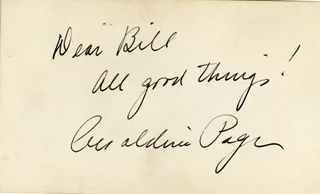 Dear Bill
All good things!
Geraldine Page